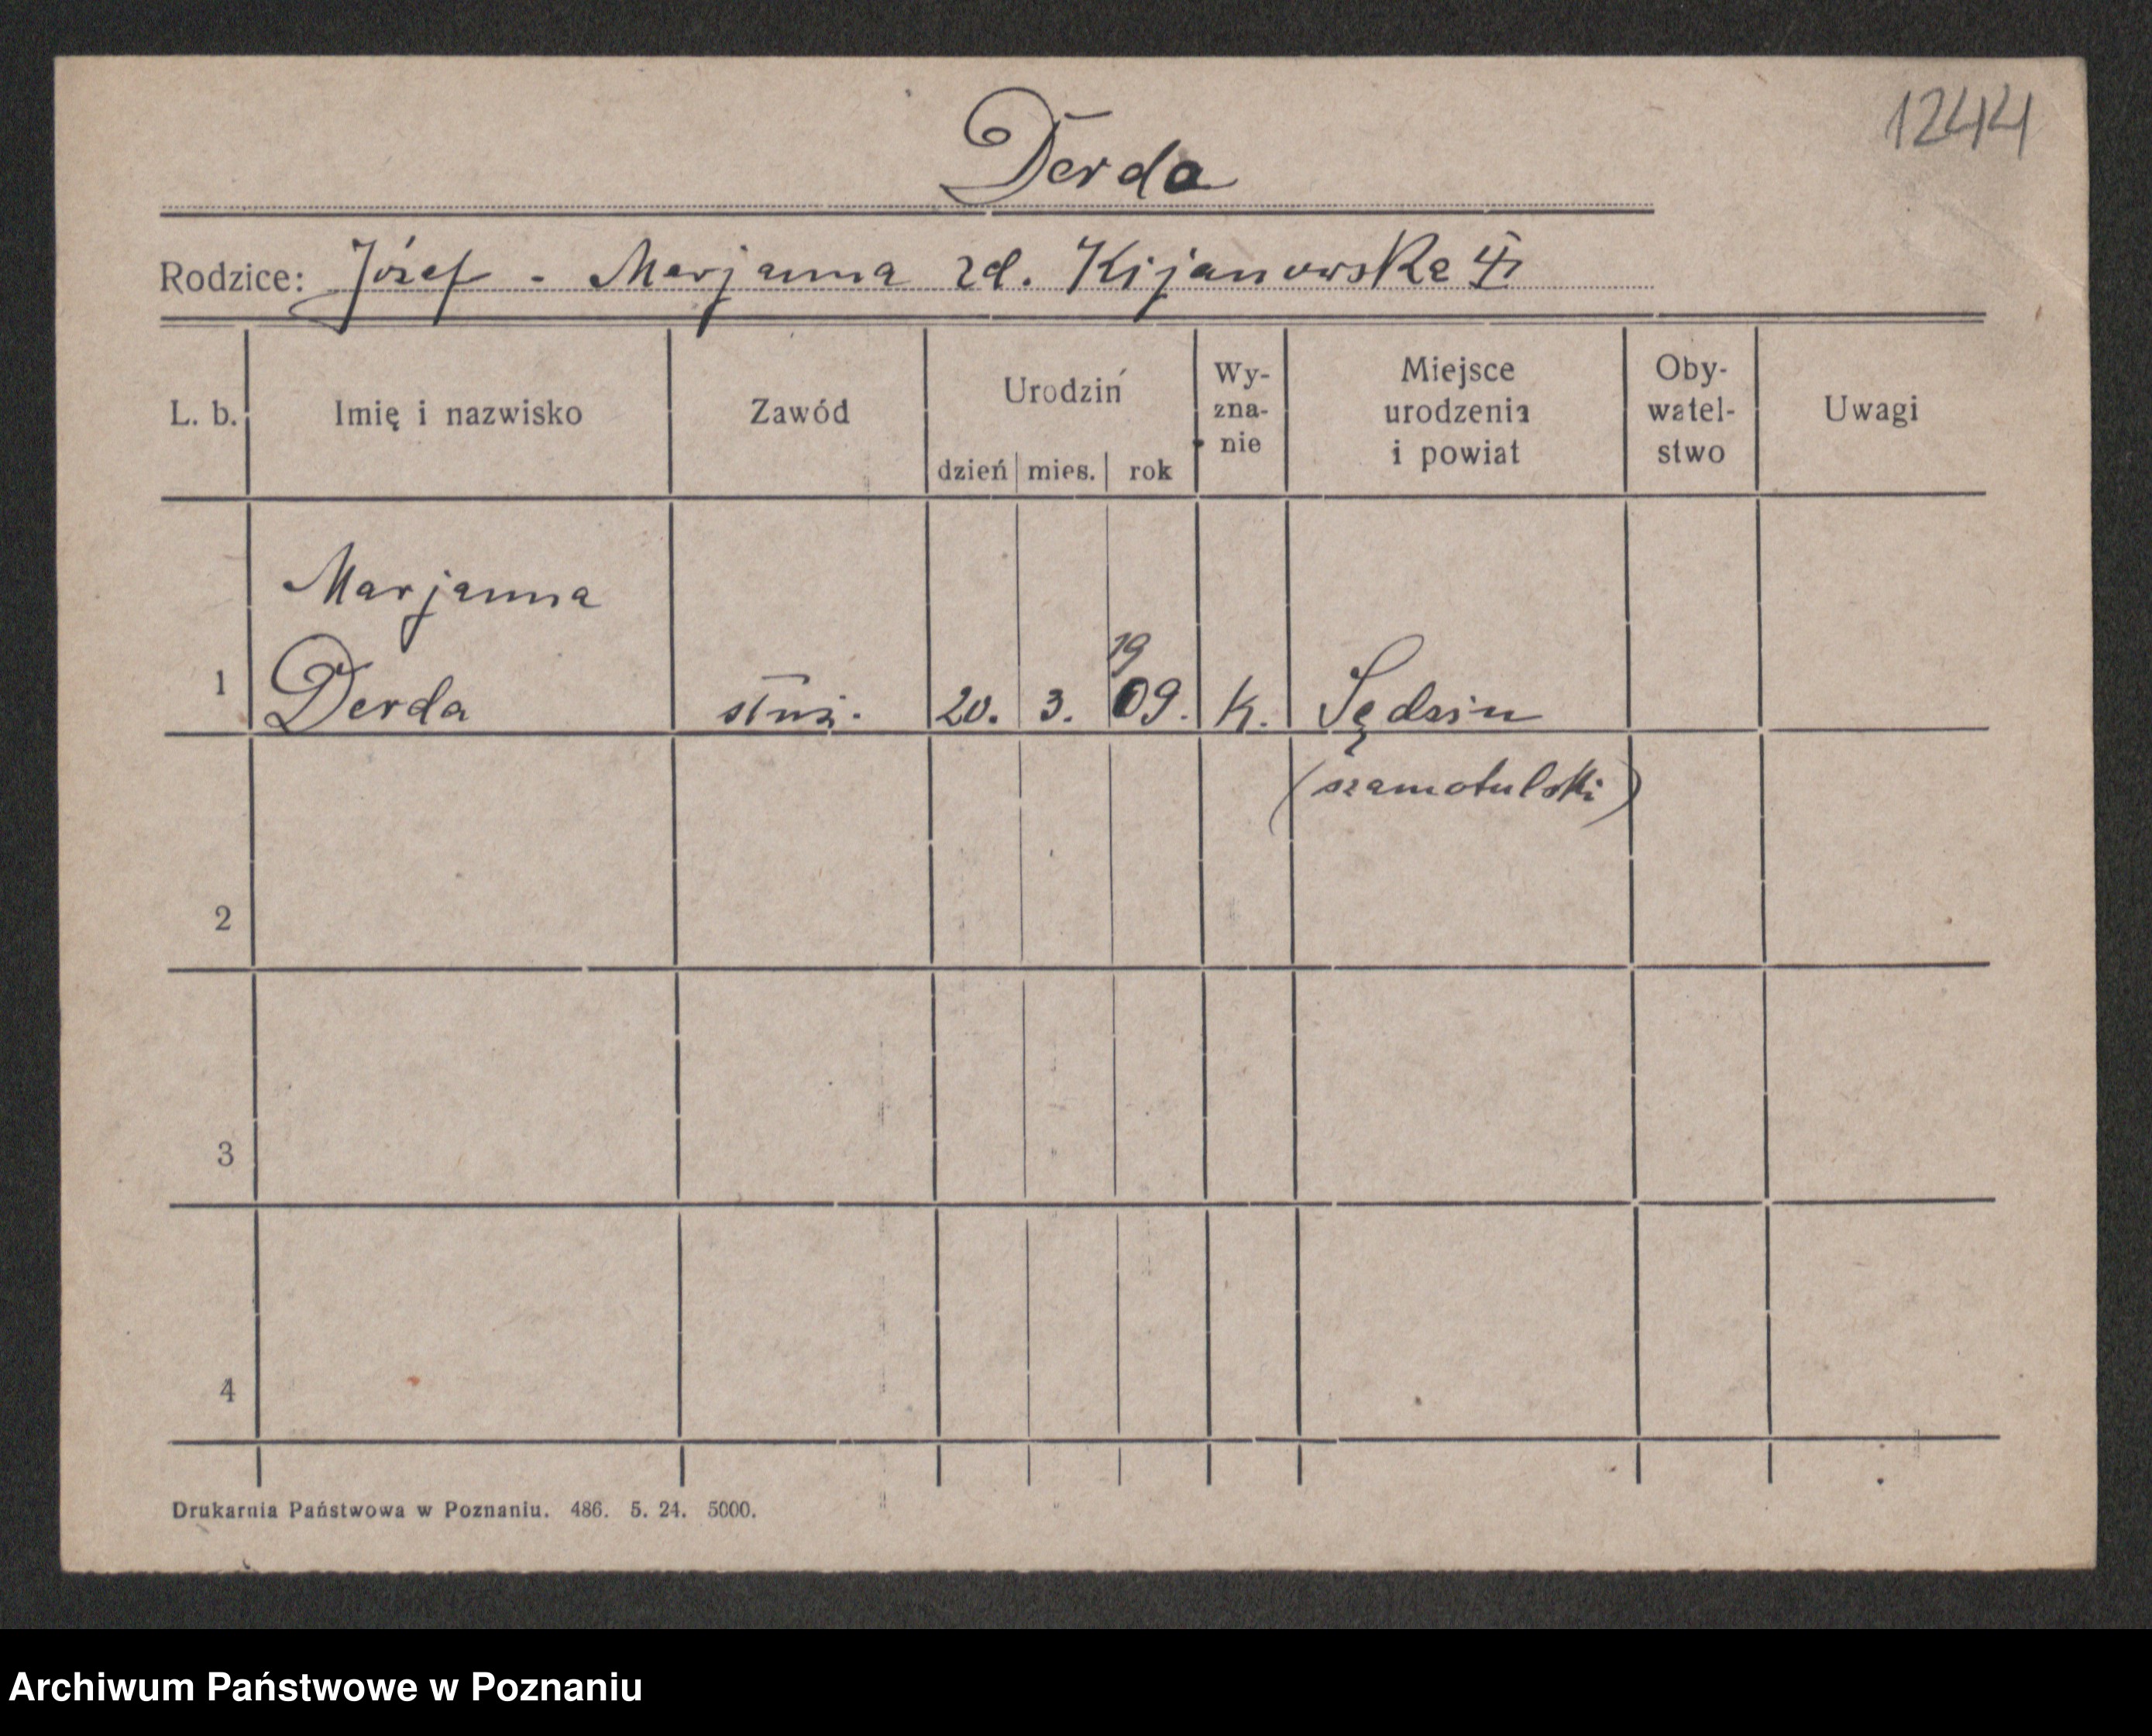 1244
Derda
Rodzice: Józef - Marjanna zd. Kijanowska
L. b. Imię i nazwisko Zawód Urodzin Wy- Miejsce Oby- Uwagi
zna- urodzenia watel-
nie i powiat stwo
dzień mies. rok
Marjanna
19
1 Derda służ. 20. 3. 09. k. Sędzin
(szamotulski)
2
3
4
Drukarnia Państwowa w Poznaniu. 486. 5. 24. 5000.
Archiwum Państwowe w Poznaniu